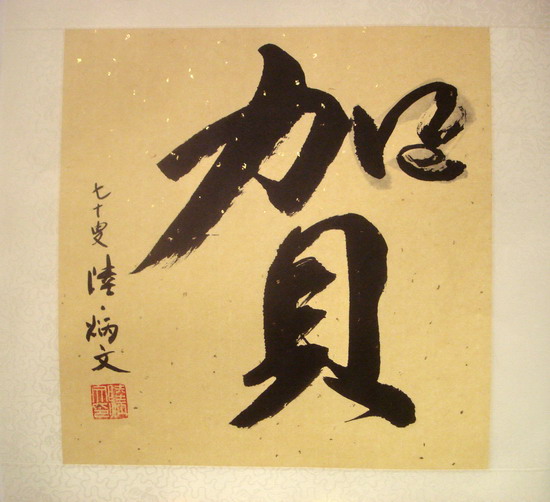 賀
七十叟 陸炳文